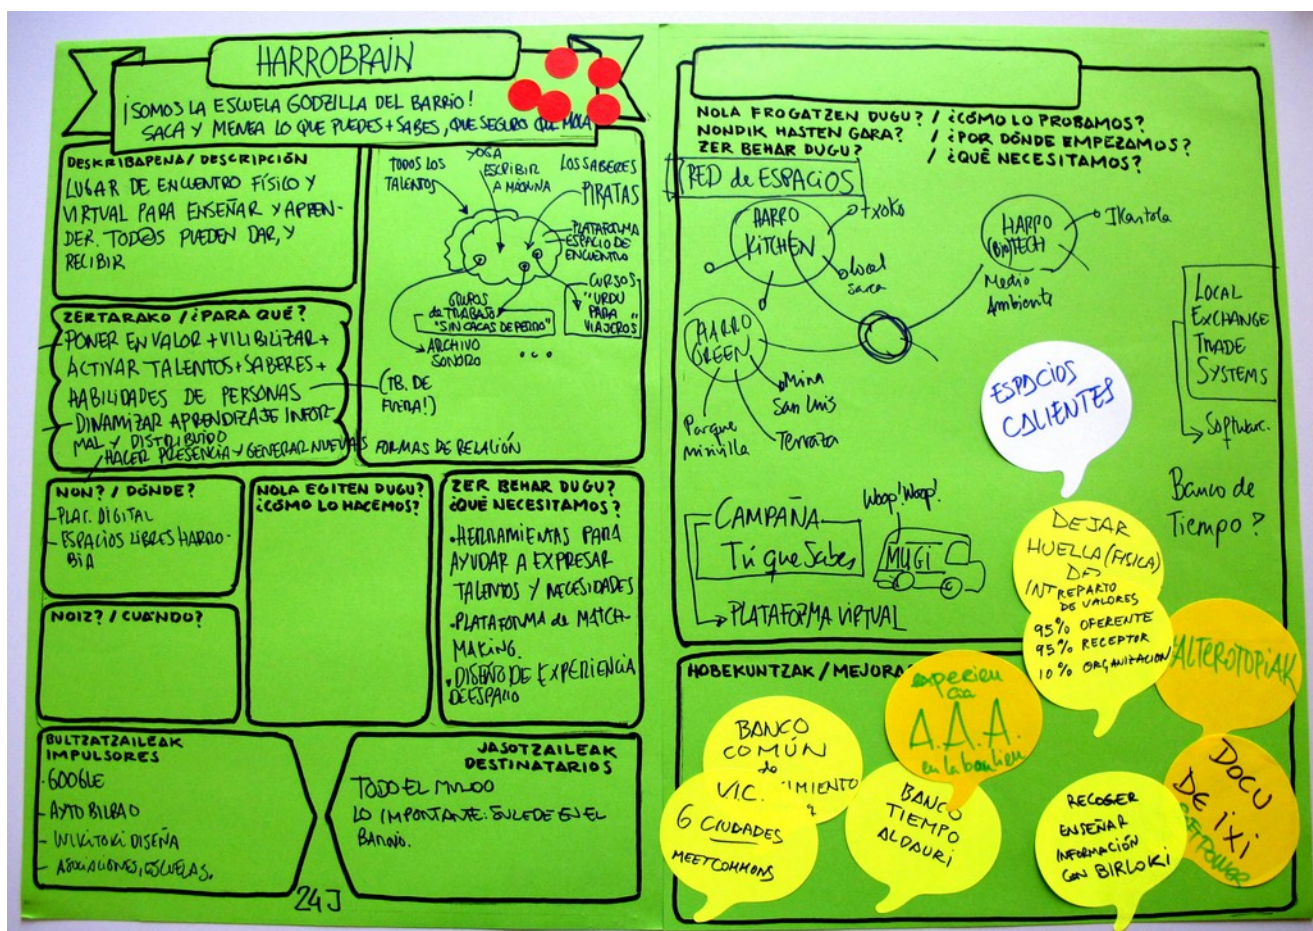 HARROBRAIN
¡SOMOS LA ESCUELA GODZILLA DEL BARRIO!
SACA Y MENEA LO QUE PUEDES + SABES, QUE SEGURO QUE MOLA
DESKRIBAPENA / DESCRIPCIÓN
LUGAR DE ENCUENTRO FÍSICO Y
VIRTUAL PARA ENSEÑAR Y APREN-
DER. TOD@S PUEDEN DAR, Y
RECIBIR
TODOS LOS
TALENTOS
YOGA
ESCRIBIR
A MÁQUINA
LOS SABERES
PIRATAS
PLATAFORMA
ESPACIO DE
ENCUENTRO
CURSOS
"URDU
PARA
VIAJEROS"
GRUPOS
de TRABAJO
"SIN CACAS DE PERRO"
ARCHIVO
SONORO
...
ZERTARAKO / ¿PARA QUÉ?
- PONER EN VALOR + VILIBILIZAR +
ACTIVAR TALENTOS + SABERES +
HABILIDADES DE PERSONAS
(TB. DE
FUERA!)
- DINAMIZAR APRENDIZAJE INFOR-
MAL Y DISTRIBUIDO
HACER PRESENCIA Y GENERAR NUEVAS FORMAS DE RELACIÓN
NON? / DÓNDE?
- PLAT. DIGITAL
- ESPACIOS LIBRES HARRO-
BIA
NOLA EGITEN DUGU?
¿CÓMO LO HACEMOS?
ZER BEHAR DUGU?
¿QUÉ NECESITAMOS?
• HERRAMIENTAS PARA
AYUDAR A EXPRESAR
TALENTOS Y NECESIDADES
• PLATAFORMA de MATCH-
MAKING.
• DISEÑO DE EXPERIENCIA
DE ESPACIO
NOIZ? / CUÁNDO?
BULTZATZAILEAK
IMPULSORES
- GOOGLE
- AYTO BILBAO
- WIKITOKI DISEÑA
- ASOCIACIONES, ESCUELAS.
JASOTZAILEAK
DESTINATARIOS
TODO EL MUNDO
LO IMPORTANTE: SUCEDE EN EL
BARRIO.
24J
NOLA FROGATZEN DUGU? / ¿CÓMO LO PROBAMOS?
NONDIK HASTEN GARA? / ¿POR DÓNDE EMPEZAMOS?
ZER BEHAR DUGU? / ¿QUÉ NECESITAMOS?
RED de ESPACIOS
HARRO
KITCHEN
txoko
local
sarea
HARRO
(BIO)TECH
IKastola
Medio
Ambiente
HARRO
GREEN
Mina
San Luis
Terraza
Parque
miravilla
LOCAL
EXCHANGE
TRADE
SYSTEMS
Software.
Banco de
Tiempo?
ESPACIOS
CALIENTES
CAMPAÑA
Tú que Sabes
PLATAFORMA VIRTUAL
Woop! Woop!
MUGI
DEJAR
HUELLA (FÍSICA)
REPARTO
DE VALORES
95% OFERENTE
95% RECEPTOR
10% ORGANIZACION
ALTEROTOPIAK
HOBEKUNTZAK / MEJORA
experien
cia
A.A.A.
en la banlieu
BANCO
COMÚN
do
IMIENTO
V.I.C.
6 CIUDADES
MEETCOMMONS
BANCO
TIEMPO
ALDAURI
RECOGER
ENSEÑAR
INFORMACIÓN
CON BIRLOKI
DOCU
DE iXi
POWER